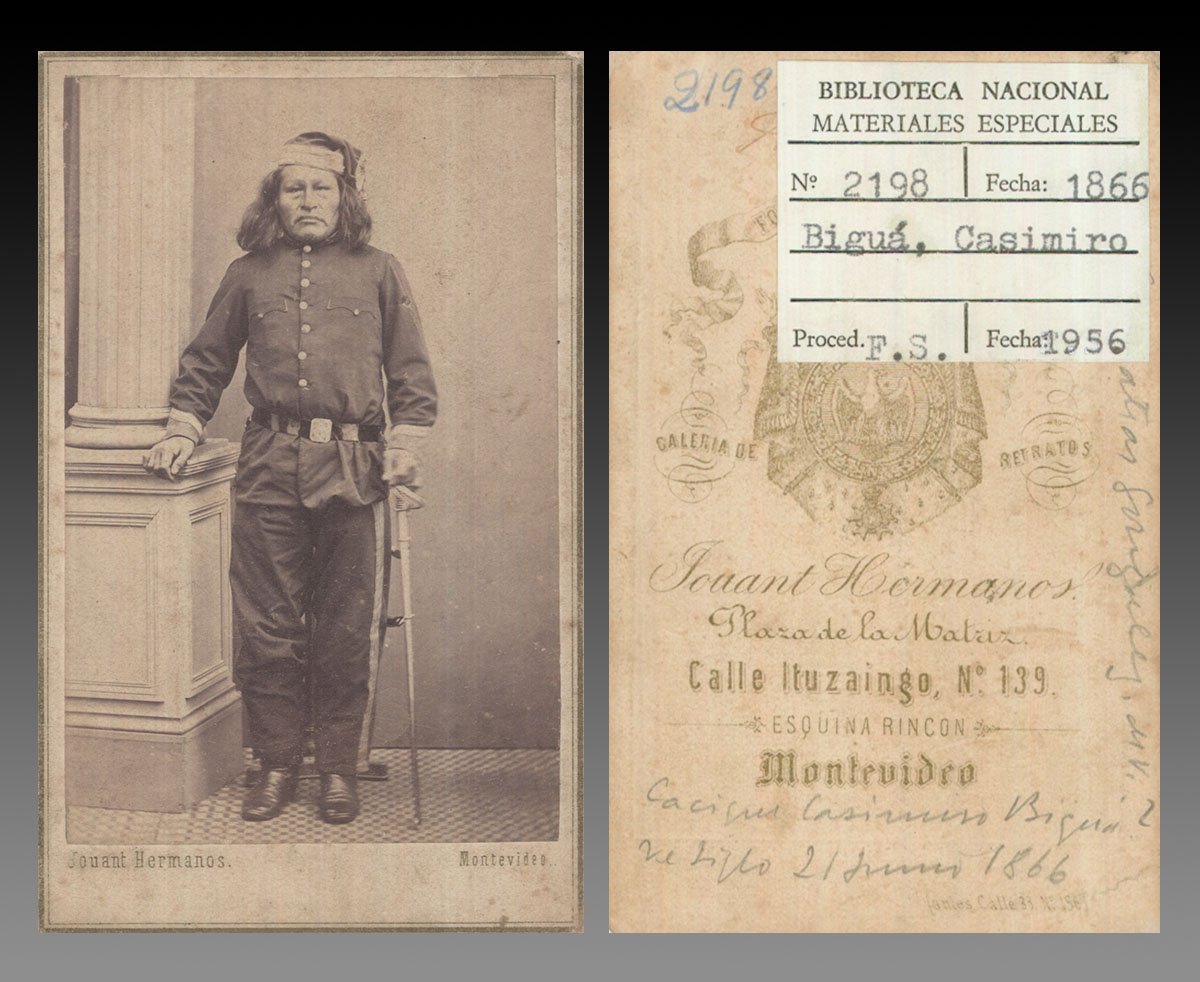 Jouant Hermanos.
Montevideo.
2198
BIBLIOTECA NACIONAL
MATERIALES ESPECIALES
Nº 2198 Fecha: 1866
Biguá, Casimiro
Proced. F.S. Fecha: 1956
GALERIA DE RETRATOS
Jouant Hermanos.
Plaza de la Matriz.
Calle Ituzaingo, Nº 139.
ESQUINA RINCON
Montevideo
Cacique Casimiro Biguá
21 Junio 1866